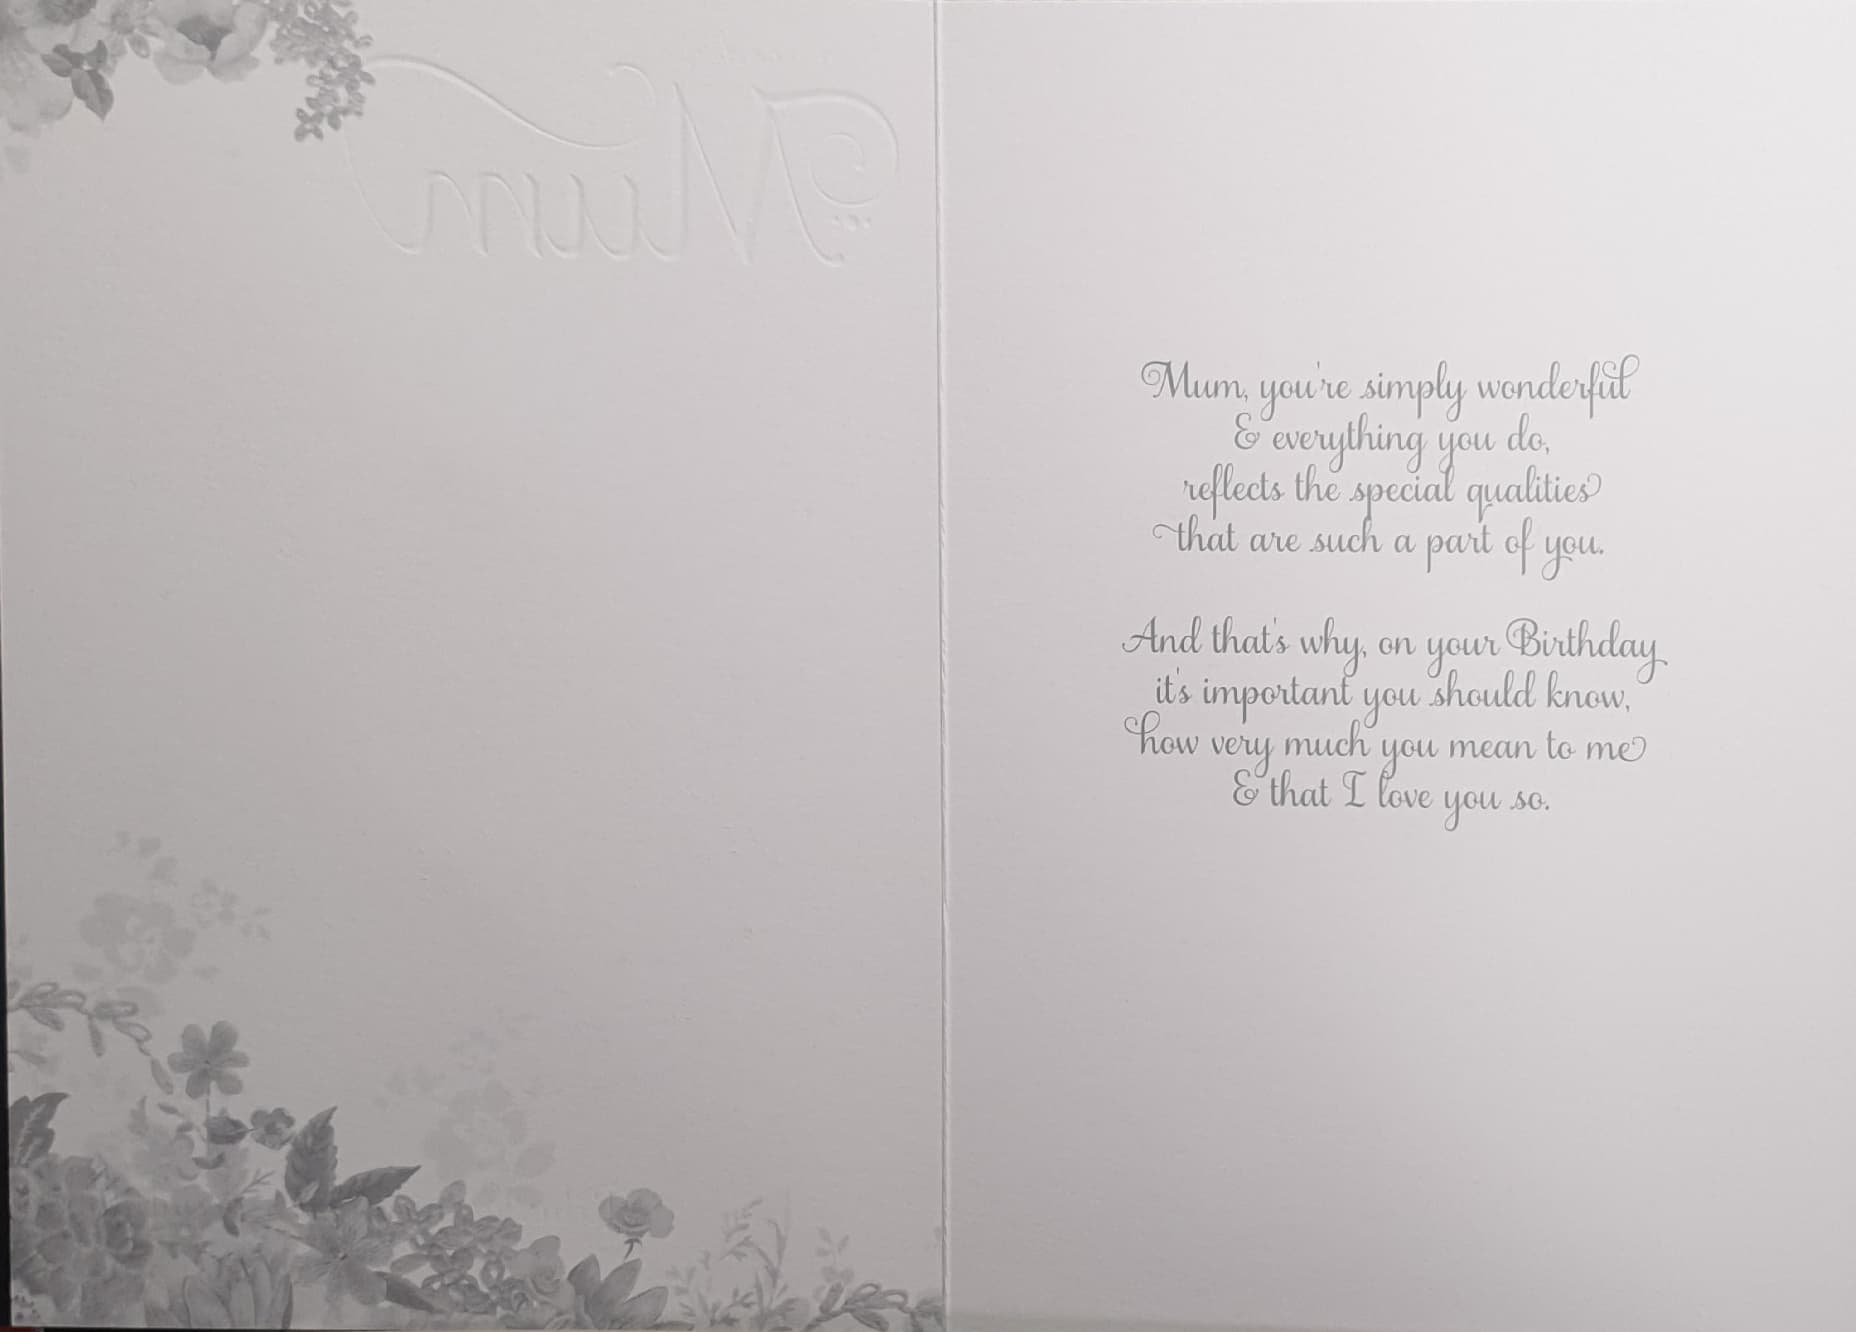 Mum
Mum, you're simply wonderful
& everything you do,
reflects the special qualities
that are such a part of you.
And that's why, on your Birthday
it's important you should know,
how very much you mean to me
& that I love you so.